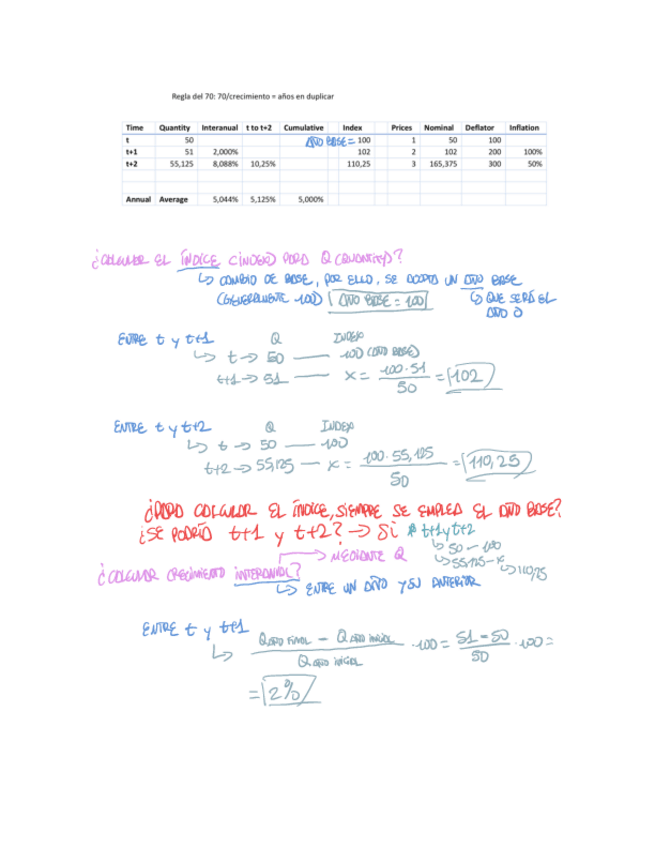 Regla del 70: 70/crecimiento = años en duplicar
Time Quantity Interanual t to t+2 Cumulative Index Prices Nominal Deflator Inflation
t 50 AÑO BASE = 100 1 50 100
t+1 51 2,000% 102 2 102 200 100%
t+2 55,125 8,088% 10,25% 110,25 3 165,375 300 50%
Annual Average 5,044% 5,125% 5,000%
¿CALCULAR EL ÍNDICE (INDEX) PARA Q (QUANTITY)?
↳ CAMBIO DE BASE, POR ELLO, SE ADOPTA UN AÑO BASE
(GENERALMENTE 100) AÑO BASE = 100 ↳ QUE SERÁ EL
AÑO 0
ENTRE t y t+1 Q INDEX
↳ t → 50 — 100 (AÑO BASE)
t+1 → 51 — x = 100·51 / 50 = 102
ENTRE t y t+2 Q INDEX
↳ t → 50 — 100
t+2 → 55,125 — x = 100·55,125 / 50 = 110,25
¿PARA CALCULAR EL ÍNDICE, SIEMPRE SE EMPLEA EL AÑO BASE?
¿SE PODRÍA t+1 y t+2? → Sí * t+1 y t+2
↳ 50 — 100
↳ 55,125 — x
↳ 110,25
→ MEDIANTE Q
¿CALCULAR CRECIMIENTO INTERANUAL?
↳ ENTRE UN AÑO Y SU ANTERIOR
ENTRE t y t+1
↳ Q AÑO FINAL − Q AÑO INICIAL / Q AÑO INICIAL · 100 = 51 − 50 / 50 · 100 =
= 2%